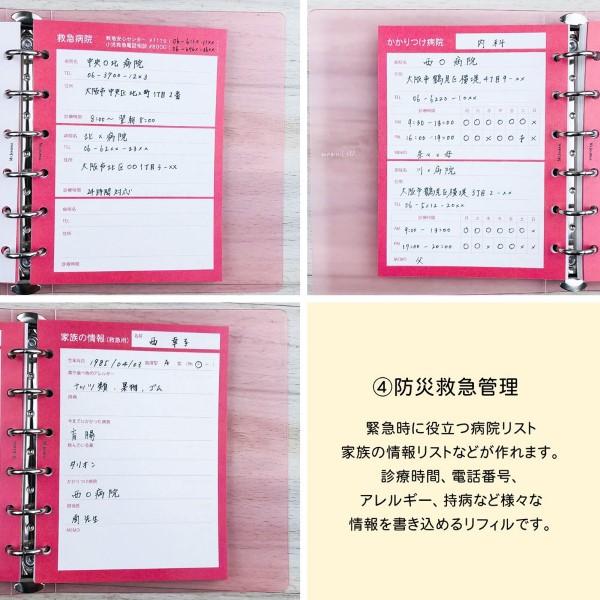 救急病院
救急安心センター #7119
小児救急電話相談 #8000
病院名
中央〇北病院
TEL
06-3900-12×3
住所
大阪市中央区北×町1丁目2番
診療時間
8:00〜翌朝8:00
病院名
北×病院
TEL
06-62××-23××
住所
大阪市北区〇〇1丁目3-××
診療時間
24時間対応
病院名
TEL
住所
診療時間
かかりつけ病院
内科
病院名
西〇病院
住所
大阪市鶴見区横堤4丁目9-××
TEL
06-6220-10××
診療時間
月 火 水 木 金 土 日
AM 9:30-13:00 〇 〇 〇 〇 〇 〇 ×
PM 16:00-19:00 〇 〇 × 〇 〇
MEMO
病院名
川〇病院
住所
大阪市鶴見区横堤3丁目2-××
TEL
06-5012-20××
診療時間
月 火 水 木 金 土 日
AM 9:00-13:00 〇 〇 〇 〇 〇 〇 ×
PM 17:00-20:00 〇 〇 × 〇 〇 × ×
MEMO
父
家族の情報(救急用)
名前
西 幸子
生年月日 1985/04/03 血液型 A 型
薬や食べ物のアレルギー
ナッツ類、果物、ゴム
持病
今までにかかった病気
盲腸
飲んでいる薬
タリオン
かかりつけ病院
西〇病院
担当医
南先生
MEMO
④防災救急管理
緊急時に役立つ病院リスト
家族の情報リストなどが作れます。
診療時間、電話番号、
アレルギー、持病など様々な
情報を書き込めるリフィルです。